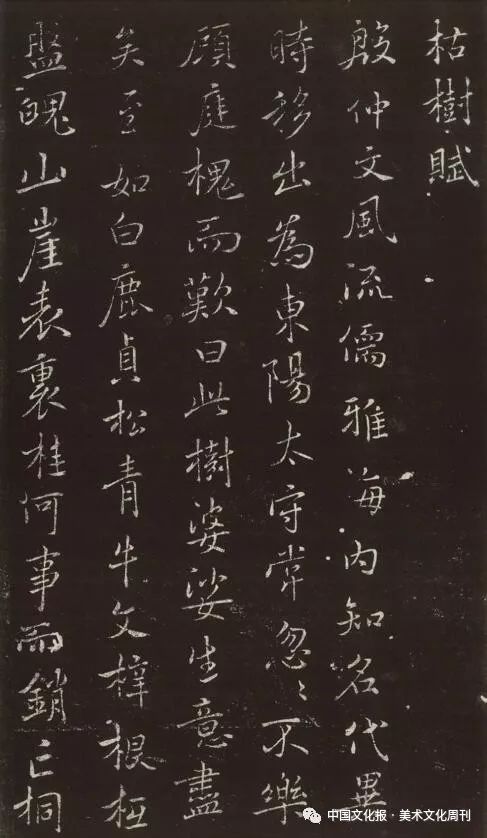 枯樹賦
殷仲文風流儒雅海内知名代異
時移出為東陽太守常忽〻不樂
顧庭槐而歎曰此樹婆娑生意盡
矣至如白鹿貞松青牛文梓根柢
盤魄山崖表裏桂何事而銷亡桐
中国文化报·美术文化周刊